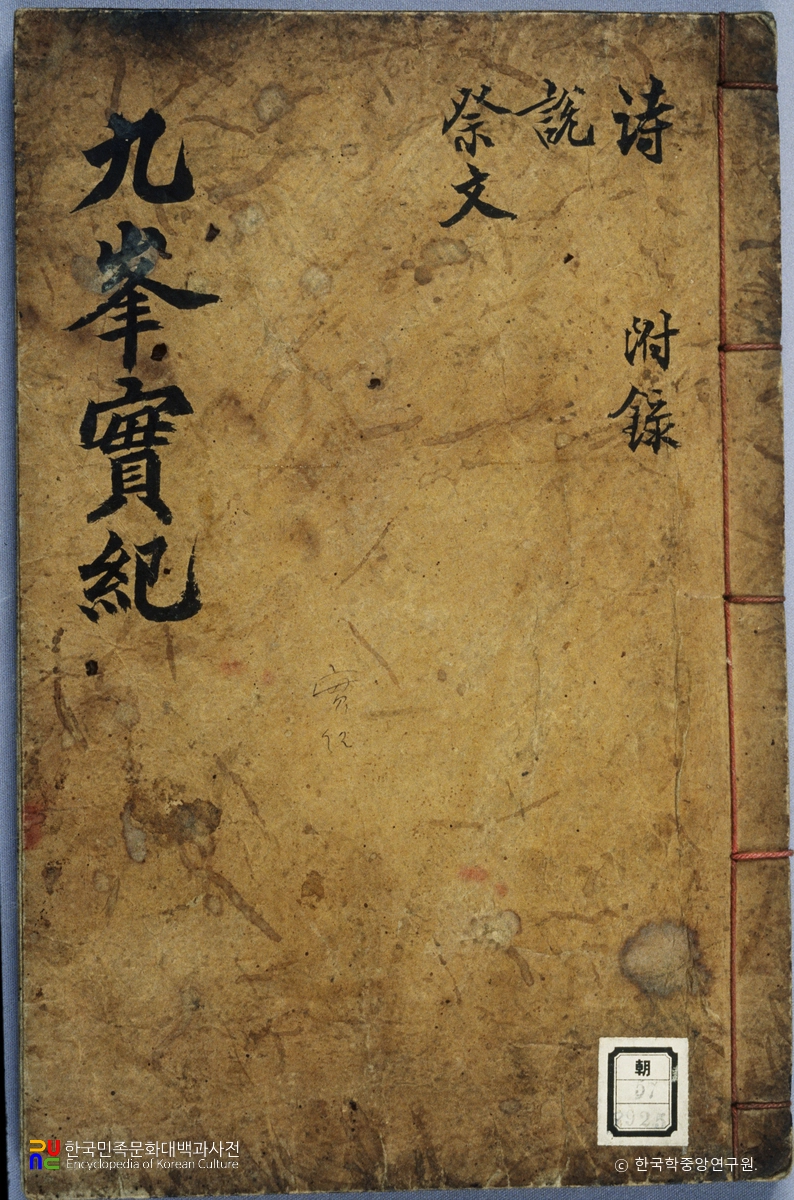 詩
說
祭文
附錄
九峯實紀
實
紀
朝
97
한국민족문화대백과사전
Encyclopedia of Korean Culture
© 한국학중앙연구원.